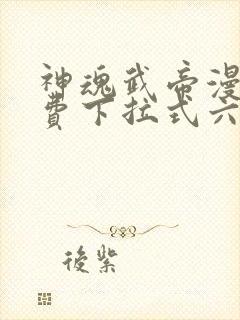 神魂武帝漫
費下拉式六
後紫